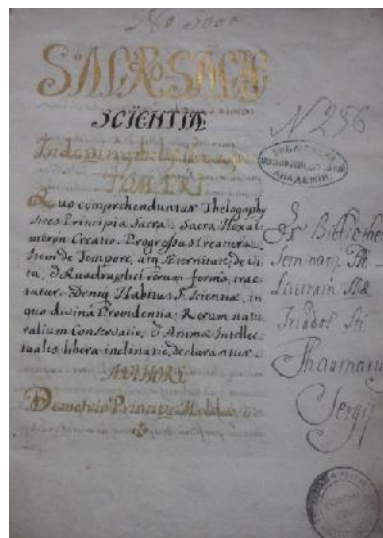 SACRO SANCTÆ
SCIENTIÆ
Indepingibilis Imago
TOM: PRI:
Quo comprehenduntur Theologophy
sices Principia Sacra. Sacra Hexal
meron Creatio. Progressus Creaturæ.
Item de Tempore, atq Æternitate, de Vi
ta, & Quadruplici rerum forma, trac
tatur. Deniq Habitus S. Scientiæ, in
quo divina Providentia, Rerum natu
ralium Conservatio, & Animæ Intellec
tualis libera inclinatio, declarantur.
AUTHORE
Demetrio Principe Moldav
N 256
БИБЛІОТЕКА
АКАДЕМІИ
Ex Bibliothe
Seminarij
Lauram
Triados Sti
Thaumatu
Sergij